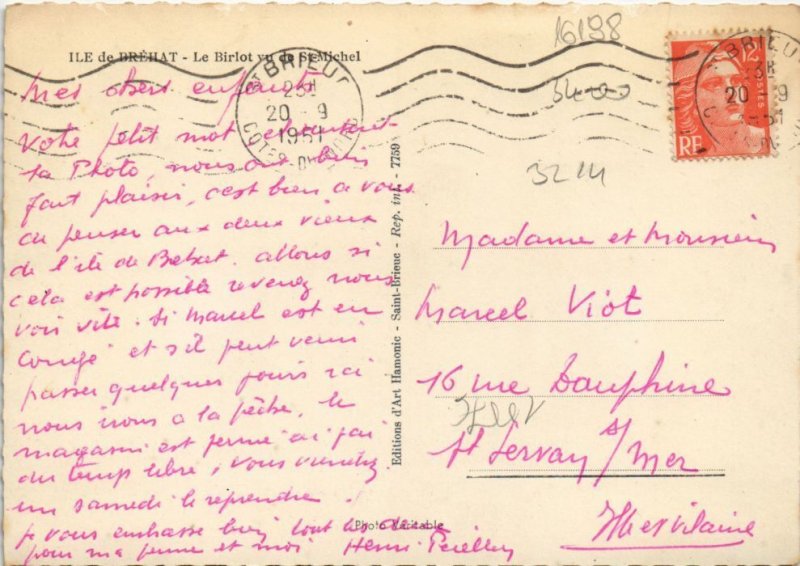 ILE de BRÉHAT - Le Birlot vu de St-Michel
16198
34-00
3214
ST BRIEUC
20 - 9
1951
CÔTES DU NORD
ST BRIEUC
20 9
1951
POSTES
RF
Mes chers enfants
Votre petit mot contenant
la Photo, nous ont bien
fait plaisir, c'est bien a vous
de penser aux deux vieux
de l'île de Bréhat. allons si
cela est possible revenez nous
voir vite. Si Marcel est en
Congé et s'il peut venir
passer quelques jours ici
nous irons a la pêche. le
magasin est fermé ai j'ai
du temps libre, vous viendrez
un samedi le reprendre
je vous embrasse bien tout les deux
pour ma femme et moi Henri
Editions d'Art Hamonic - Saint-Brieuc - Rep. int. - 7759
Madame et Monsieur
Marcel Viot
16 rue Dauphine
St Servan s/Mer
Ille et Vilaine
Photo Véritable